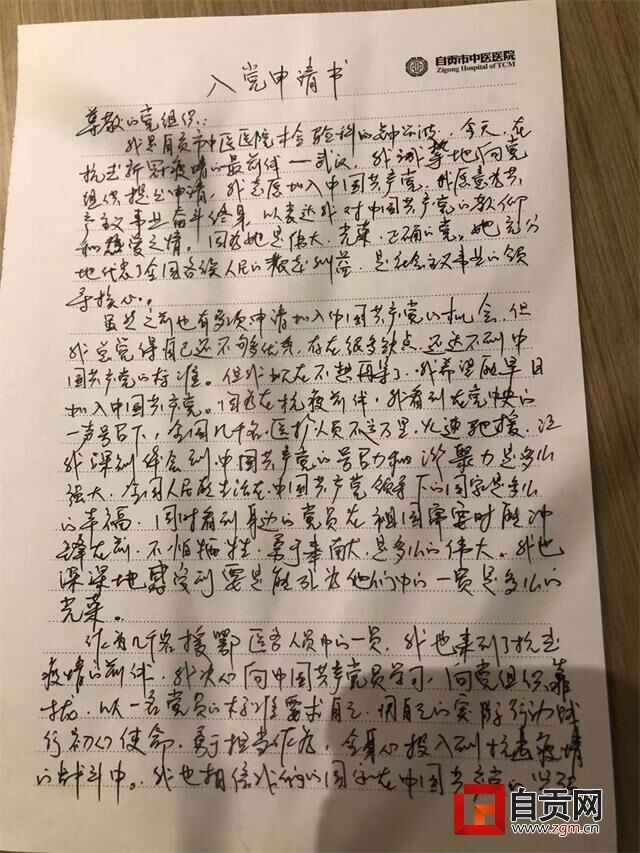 自贡市中医医院
Zigong Hospital of TCM
入党申请书
尊敬的党组织：
我是自贡市中医医院检验科的，今天，在
抗击新冠疫情的最前线—武汉，我诚挚地向党
组织提出申请，我志愿加入中国共产党，我愿意为共
产主义事业奋斗终身，以表达我对中国共产党的敬仰
和热爱之情。因为她是伟大、光荣、正确的党。她充分
地代表了全国各族人民的利益，是社会主义事业的领
导核心。
虽然之前也有多次申请加入中国共产党的机会，但
我总觉得自己还不够优秀，存在很多缺点，还达不到中
国共产党的标准。但我现在不想再等了，我希望能早日
加入中国共产党。因为在抗疫前线，我看到在党中央的
一声号召下，全国几千名医护人员不远万里，火速驰援，让
我深刻体会到中国共产党的号召力和凝聚力是多么
强大，全国人民能生活在中国共产党领导下的国家是多么
的幸福。同时看到身边的党员在祖国需要时能冲
锋在前，不怕牺牲，勇于奉献，是多么的伟大。我也
深深地感受到要是能成为他们中的一员是多么的
光荣。
作为几千名援鄂医务人员中的一员，我也来到了抗击
疫情的前线，我决心向中国共产党员学习，向党组织靠
拢，以一名党员的标准要求自己，用自己的实际行动践
行初心使命，勇于担当作为，全身心投入到抗击疫情
的战斗中。我也相信我们的国家在中国共产党的
自贡网
www.zgm.cn